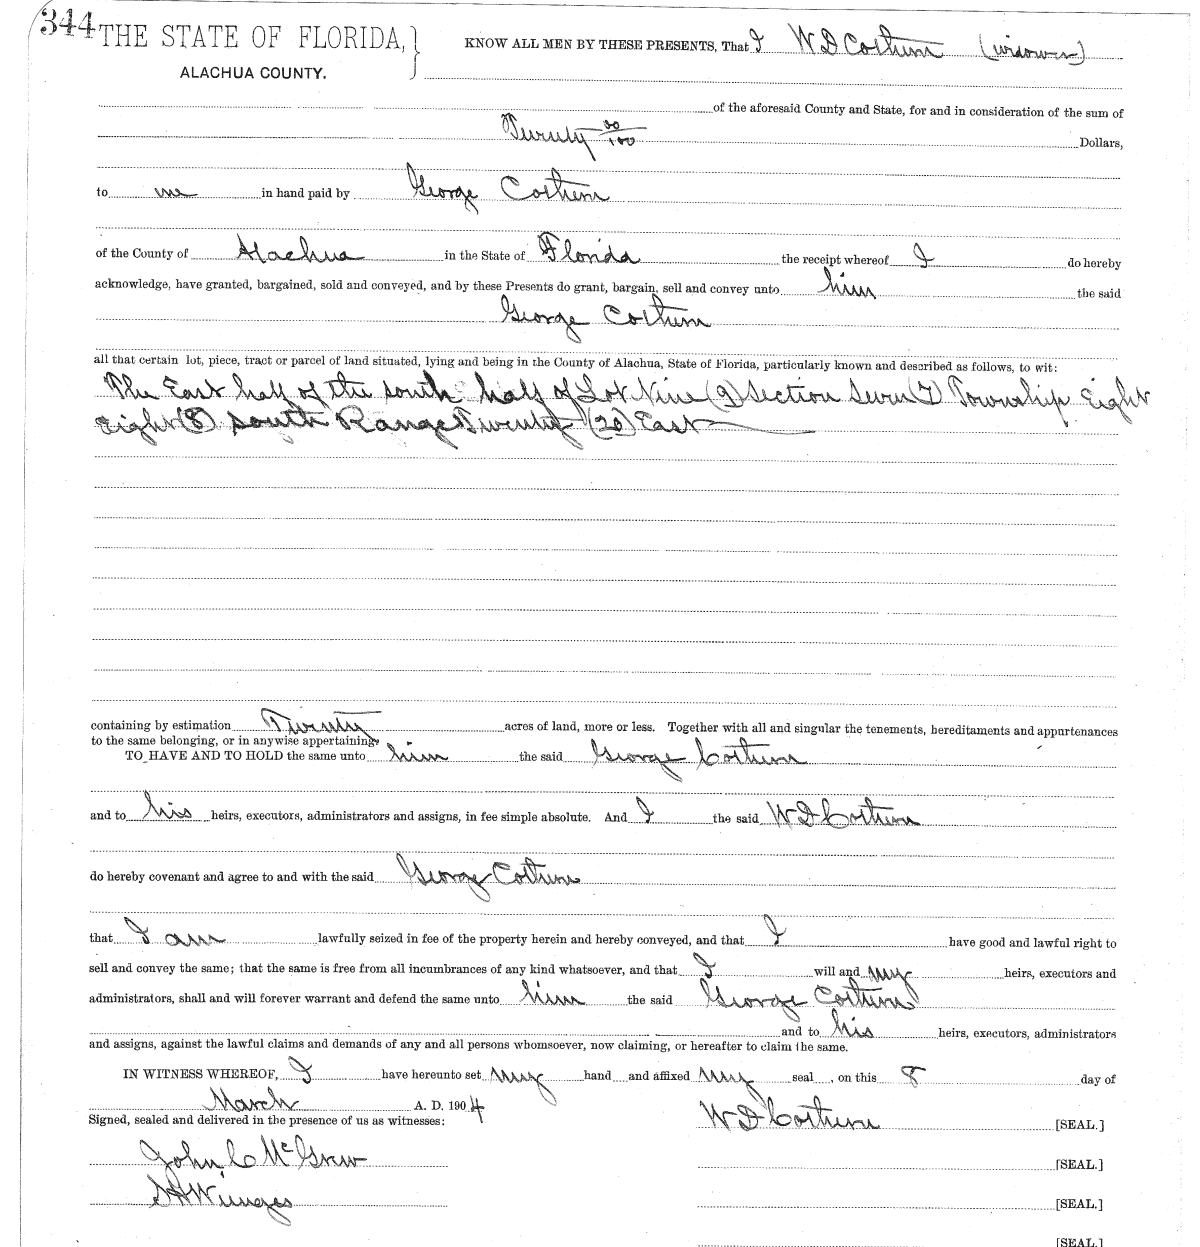 344 THE STATE OF FLORIDA, } KNOW ALL MEN BY THESE PRESENTS, That I W D Costum (widower)
ALACHUA COUNTY.
of the aforesaid County and State, for and in consideration of the sum of
Twenty 00/100 Dollars,
to me in hand paid by George Costum
of the County of Alachua in the State of Florida the receipt whereof I do hereby
acknowledge, have granted, bargained, sold and conveyed, and by these Presents do grant, bargain, sell and convey unto him the said
George Costum
all that certain lot, piece, tract or parcel of land situated, lying and being in the County of Alachua, State of Florida, particularly known and described as follows, to wit:
The East half of the south half of Lot Nine (9) Section Seven (7) Township Eight
Eight (8) south Range Twenty (20) East
containing by estimation Twenty acres of land, more or less. Together with all and singular the tenements, hereditaments and appurtenances
to the same belonging, or in anywise appertaining,
TO HAVE AND TO HOLD the same unto him the said George Costum
and to his heirs, executors, administrators and assigns, in fee simple absolute. And I the said W D Costum
do hereby covenant and agree to and with the said George Costum
that I am lawfully seized in fee of the property herein and hereby conveyed, and that I have good and lawful right to
sell and convey the same; that the same is free from all incumbrances of any kind whatsoever, and that I will and my heirs, executors and
administrators, shall and will forever warrant and defend the same unto him the said George Costum
and to his heirs, executors, administrators
and assigns, against the lawful claims and demands of any and all persons whomsoever, now claiming, or hereafter to claim the same.
IN WITNESS WHEREOF, I have hereunto set my hand and affixed my seal, on this 8 day of
March A. D. 1904
Signed, sealed and delivered in the presence of us as witnesses: W D Costum [SEAL.]
John C McGrew [SEAL.]
[SEAL.]
[SEAL.]